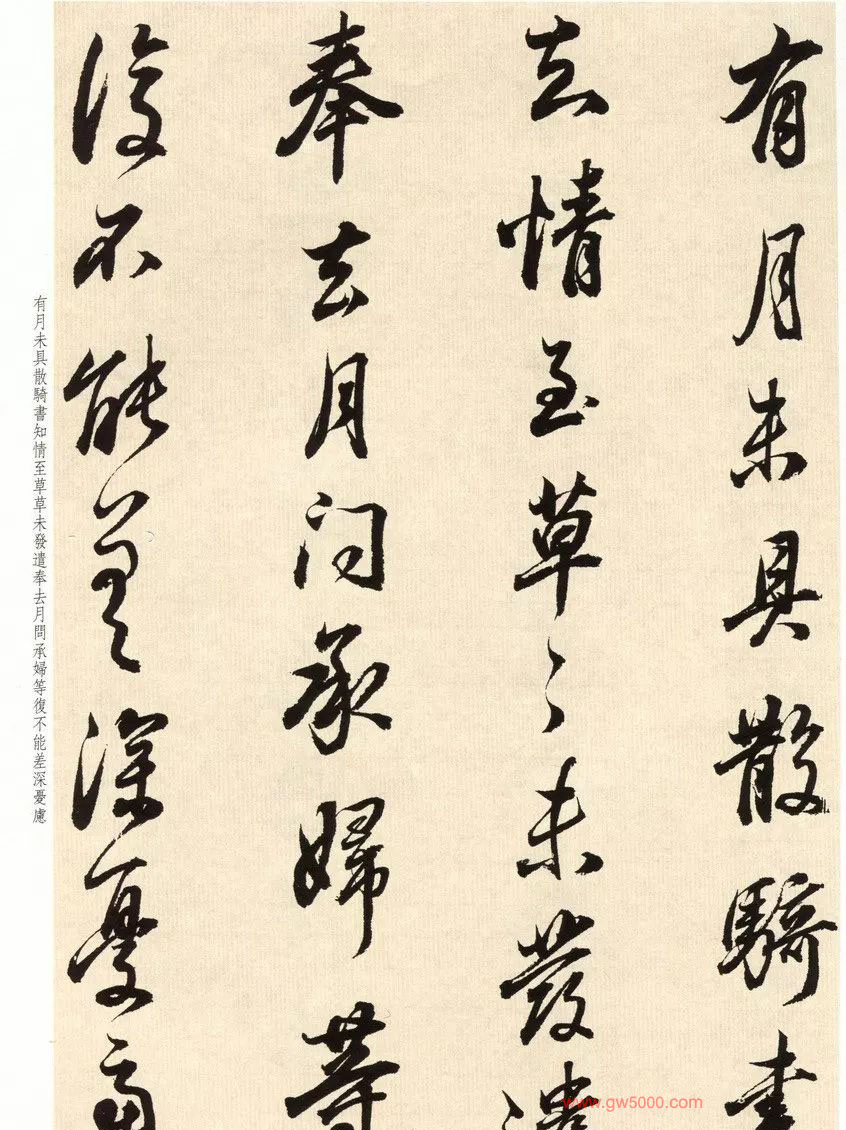 有月未具散騎書
去情至草〻未發遣
奉去月問承婦等
復不能差深憂慮
有月未具散騎書知情至草草未發遣奉去月問承婦等復不能差深憂慮
www.gw5000.com